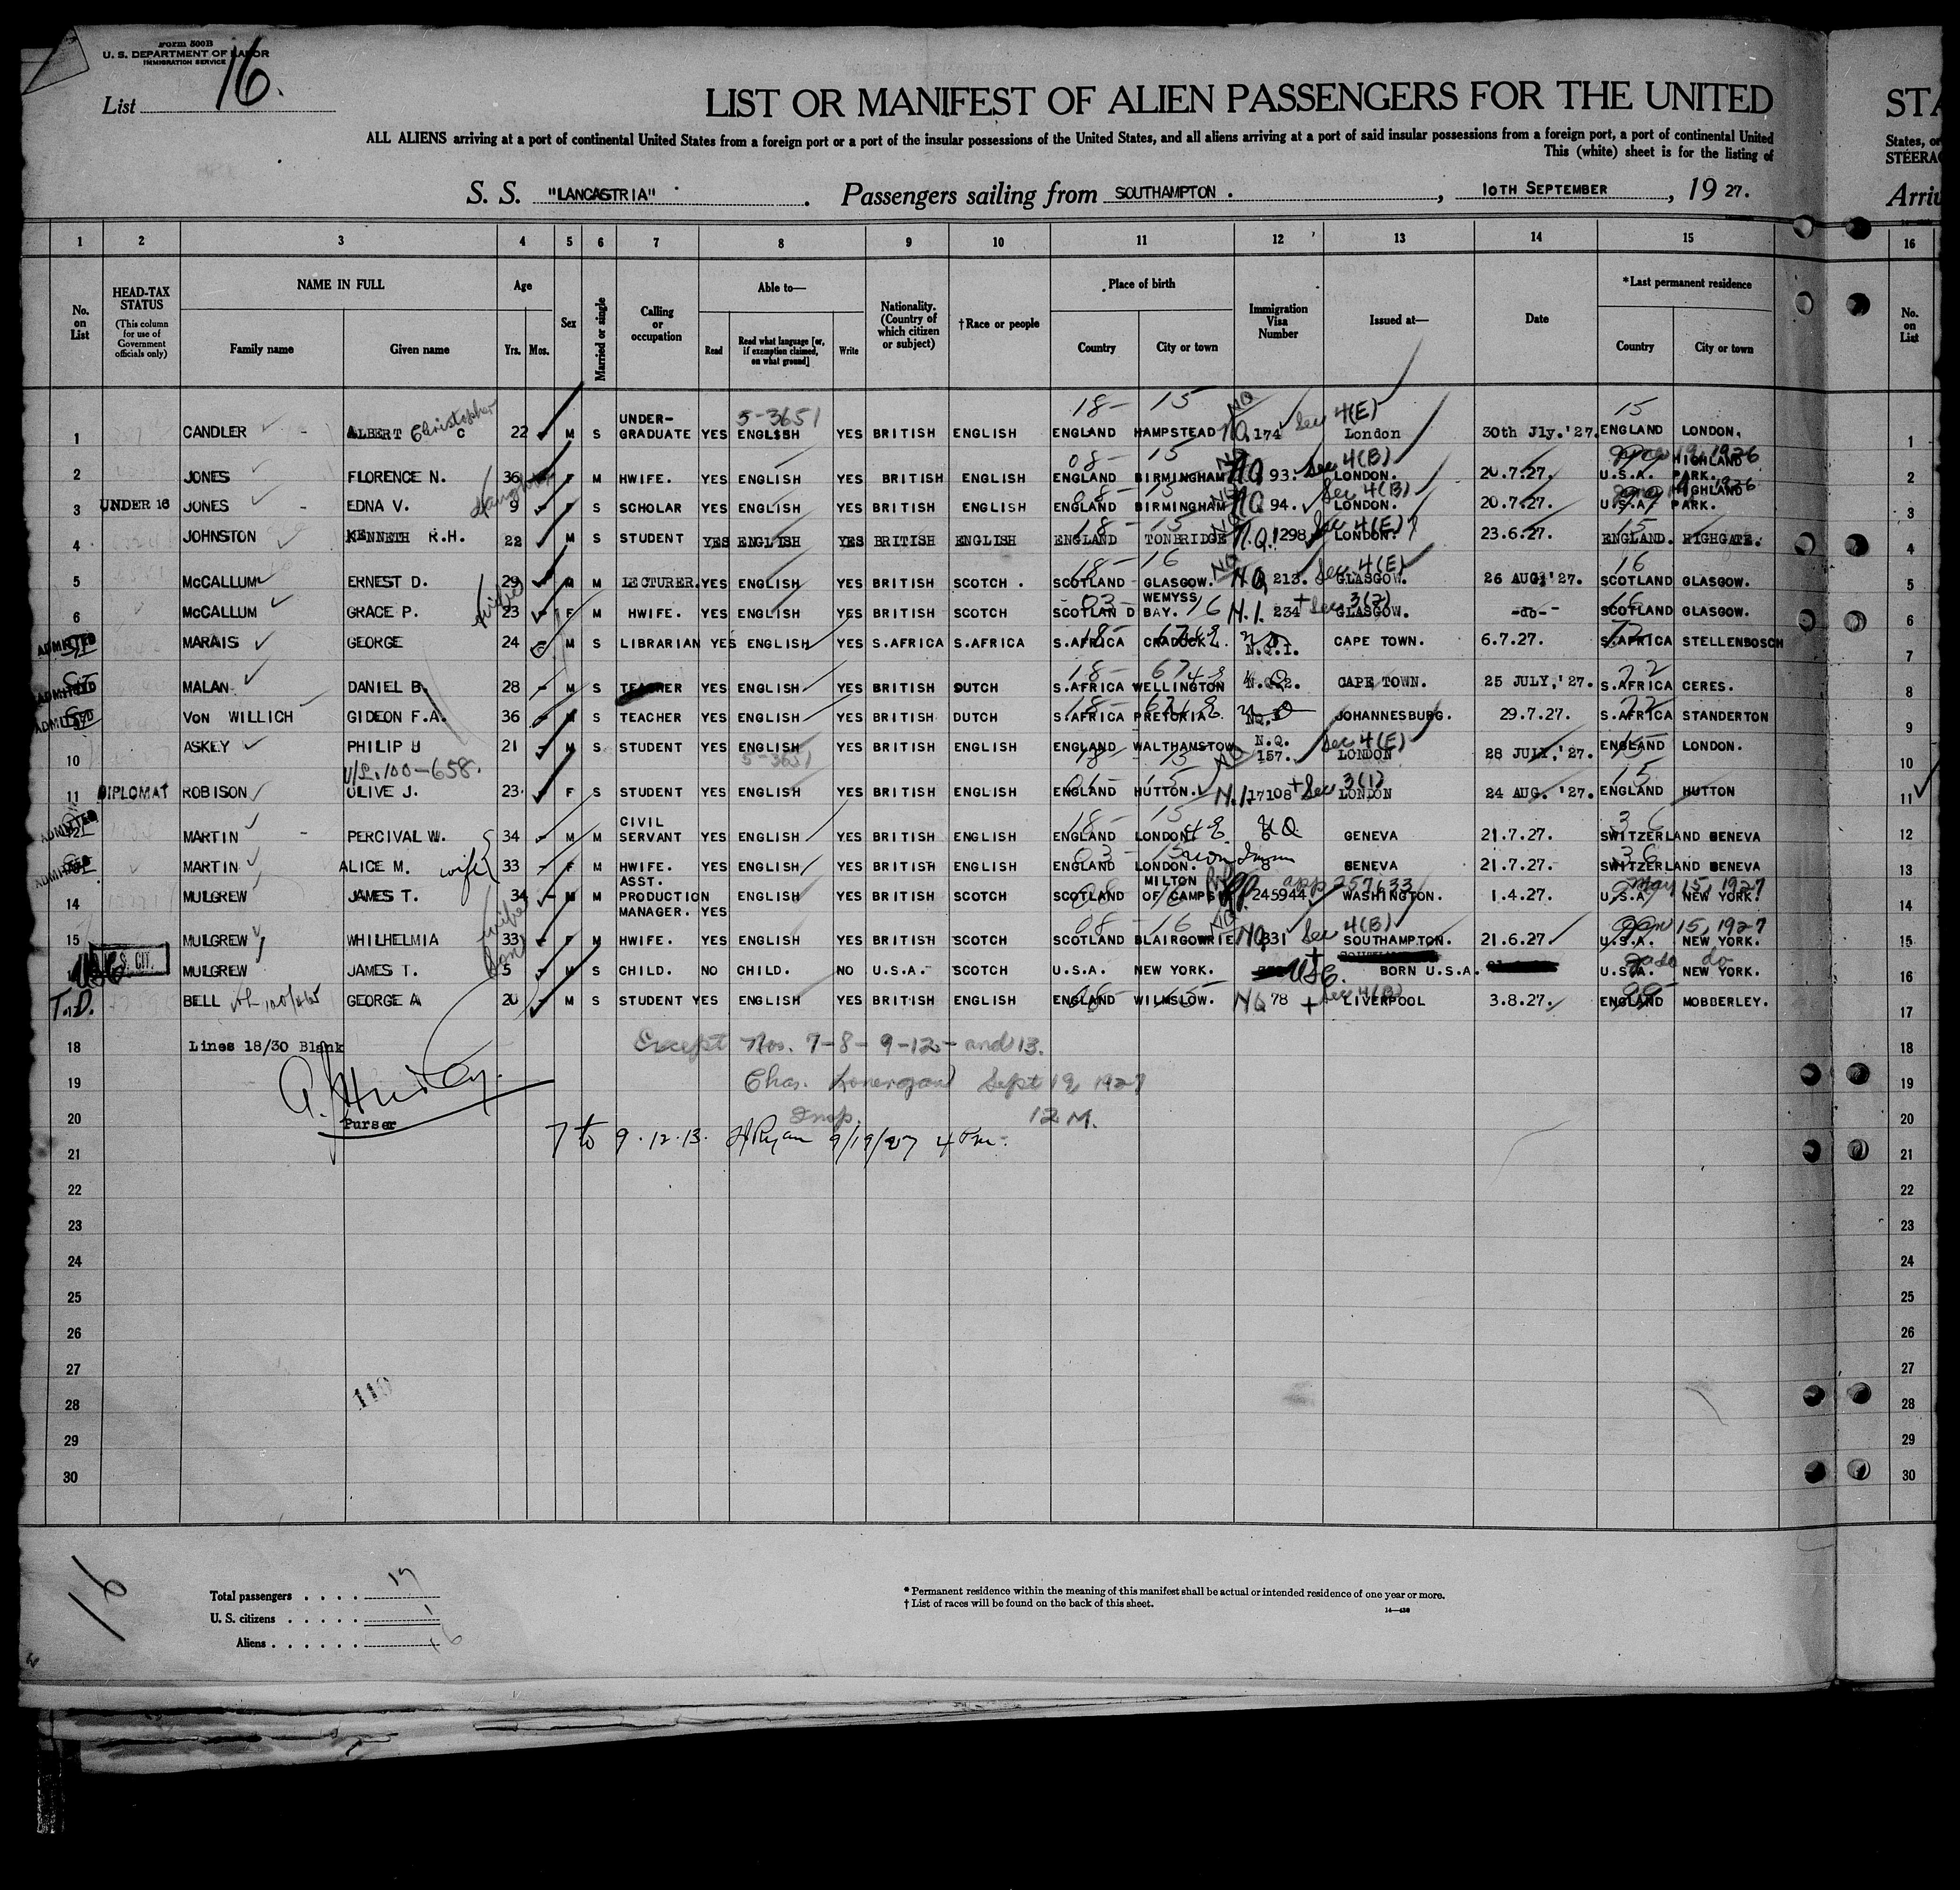 Form 500B
U. S. DEPARTMENT OF LABOR
IMMIGRATION SERVICE
List 16.
LIST OR MANIFEST OF ALIEN PASSENGERS FOR THE UNITED
STA
ALL ALIENS arriving at a port of continental United States from a foreign port or a port of the insular possessions of the United States, and all aliens arriving at a port of said insular possessions from a foreign port, a port of continental United
States, or
This (white) sheet is for the listing of
STEERAG
S. S. "LANCASTRIA". Passengers sailing from SOUTHAMPTON., 10TH SEPTEMBER, 19 27.
Arriv
1 2 3 4 5 6 7 8 9 10 11 12 13 14 15 16
No. on List
HEAD-TAX STATUS
(This column for use of Government officials only)
NAME IN FULL
Family name Given name
Age
Yrs. Mos.
Sex
Married or single
Calling or occupation
Able to—
Read Read what language [or, if exemption claimed, on what ground] Write
Nationality. (Country of which citizen or subject)
†Race or people
Place of birth
Country City or town
Immigration Visa Number
Issued at—
Date
*Last permanent residence
Country City or town
No. on List
18- 15 NQ 15
1 CANDLER - ALBERT Christopher C 22 M S UNDER-GRADUATE YES ENGLISH 5-3651 YES BRITISH ENGLISH ENGLAND HAMPSTEAD NQ.174 Sec 4(E) London 30th Jly.'27. ENGLAND LONDON. 1
2 JONES FLORENCE N. 36 F M HWIFE. YES ENGLISH YES BRITISH ENGLISH 08- 15 ENGLAND BIRMINGHAM NQ 93. Sec 4(B) LONDON. 20.7.27. U.S.A. HIGHLAND PARK. 1926 2
3 UNDER 16 JONES EDNA V. daughter 9 F S SCHOLAR YES ENGLISH YES BRITISH ENGLISH 08- 15 ENGLAND BIRMINGHAM NQ 94. Sec 4(B) LONDON. 20.7.27. U.S.A. HIGHLAND PARK. 1926 3
4 JOHNSTON KENNETH R.H. 22 M S STUDENT YES ENGLISH YES BRITISH ENGLISH 18- 15 ENGLAND TONBRIDGE N.Q.1298 Sec 4(E) LONDON. 23.6.27. 15 ENGLAND. HIGHGATE. 4
5 McCALLUM ERNEST D. 29 M M LECTURER. YES ENGLISH YES BRITISH SCOTCH. 18- 16 SCOTLAND GLASGOW. NQ 213. Sec 4(E) GLASGOW. 26 AUG,'27. 16 SCOTLAND GLASGOW. 5
6 McCALLUM GRACE P. wife 23 F M HWIFE. YES ENGLISH YES BRITISH SCOTCH 03- 16 SCOTLAND WEMYSS BAY. N.I. 234 + Sec 3(2) GLASGOW. -do- 16 SCOTLAND GLASGOW. 6
ADMITTED MARAIS GEORGE 24 M S LIBRARIAN YES ENGLISH YES S.AFRICA S.AFRICA 18- S.AFRICA CRADOCK. N.Q.I. CAPE TOWN. 6.7.27. S.AFRICA STELLENBOSCH 7
ADMITTED MALAN DANIEL B. 28 M S TEACHER YES ENGLISH YES BRITISH DUTCH 18- S.AFRICA WELLINGTON N.Q.2. CAPE TOWN. 25 JULY,'27. 72 S.AFRICA CERES. 8
ADMITTED VON WILLICH GIDEON F.A. 36 M S TEACHER YES ENGLISH YES BRITISH DUTCH 18- S.AFRICA PRETORIA NQ.3 JOHANNESBURG. 29.7.27. 72 S.AFRICA STANDERTON 9
10 ASKEY PHILIP U 21 M S STUDENT YES ENGLISH 5-3651 YES BRITISH ENGLISH ENGLAND WALTHAMSTOW 18- 15 N.Q. 157. Sec 4(E) LONDON 28 JULY,'27. ENGLAND 15 LONDON. 10
V/L.100-658.
11 DIPLOMAT ROBISON OLIVE J. 23. F S STUDENT YES ENGLISH YES BRITISH ENGLISH 01- 15 ENGLAND HUTTON. N.I.17108 + Sec 3(1) LONDON 24 AUG.'27. 15 ENGLAND HUTTON 11
ADMITTED MARTIN - PERCIVAL W. 34 M M CIVIL SERVANT YES ENGLISH YES BRITISH ENGLISH 18- 15 ENGLAND LONDON. NQ 6 GENEVA 21.7.27. 36 SWITZERLAND GENEVA 12
ADMITTED MARTIN ALICE M. wife 33 F M HWIFE. YES ENGLISH YES BRITISH ENGLISH 03- 15 ENGLAND LONDON. non Immn 8 GENEVA 21.7.27. 36 SWITZERLAND GENEVA 13
14 MULGREW JAMES T. 34 M M ASST. PRODUCTION MANAGER. YES ENGLISH YES BRITISH SCOTCH SCOTLAND MILTON OF CAMPSIE RP. 245944 app 257633 WASHINGTON. 1.4.27. May 15, 1927 U.S.A. NEW YORK. 14
15 MULGREW WHILHELMIA wife 33 F M HWIFE. YES ENGLISH YES BRITISH SCOTCH 08- 16 SCOTLAND BLAIRGOWRIE NQ 331 Sec 4(B) SOUTHAMPTON. 21.6.27 Jan 15, 1927 U.S.A. NEW YORK. 15
U.S. CIT. USC MULGREW JAMES T. son 5 M S CHILD. NO CHILD. NO U.S.A. SCOTCH U.S.A. NEW YORK. USC. BORN U.S.A. do U.S.A. NEW YORK. 16
T.D. BELL GEORGE A 20 M S STUDENT YES ENGLISH YES BRITISH ENGLISH 08- 15 ENGLAND WILMSLOW. NQ 78 + Sec 4(B) LIVERPOOL 3.8.27. ENGLAND MOBBERLEY. 17
18 Lines 18/30 Blank Except Nos. 7-8-9-12- and 13. 18
19 Chas. Lonergan Sept 19, 1927 19
20 Purser Insp. 12 M. 20
7 to 9.12.13. HRyan 9/19/27 4 Pm.
21 21
22 22
23 23
24 24
25 25
26 26
27 27
110
28 28
29 29
30 30
16
Total passengers . . . . 17
U. S. citizens . . . . . 1
Aliens . . . . . . 16
*Permanent residence within the meaning of this manifest shall be actual or intended residence of one year or more.
†List of races will be found on the back of this sheet.
14—436